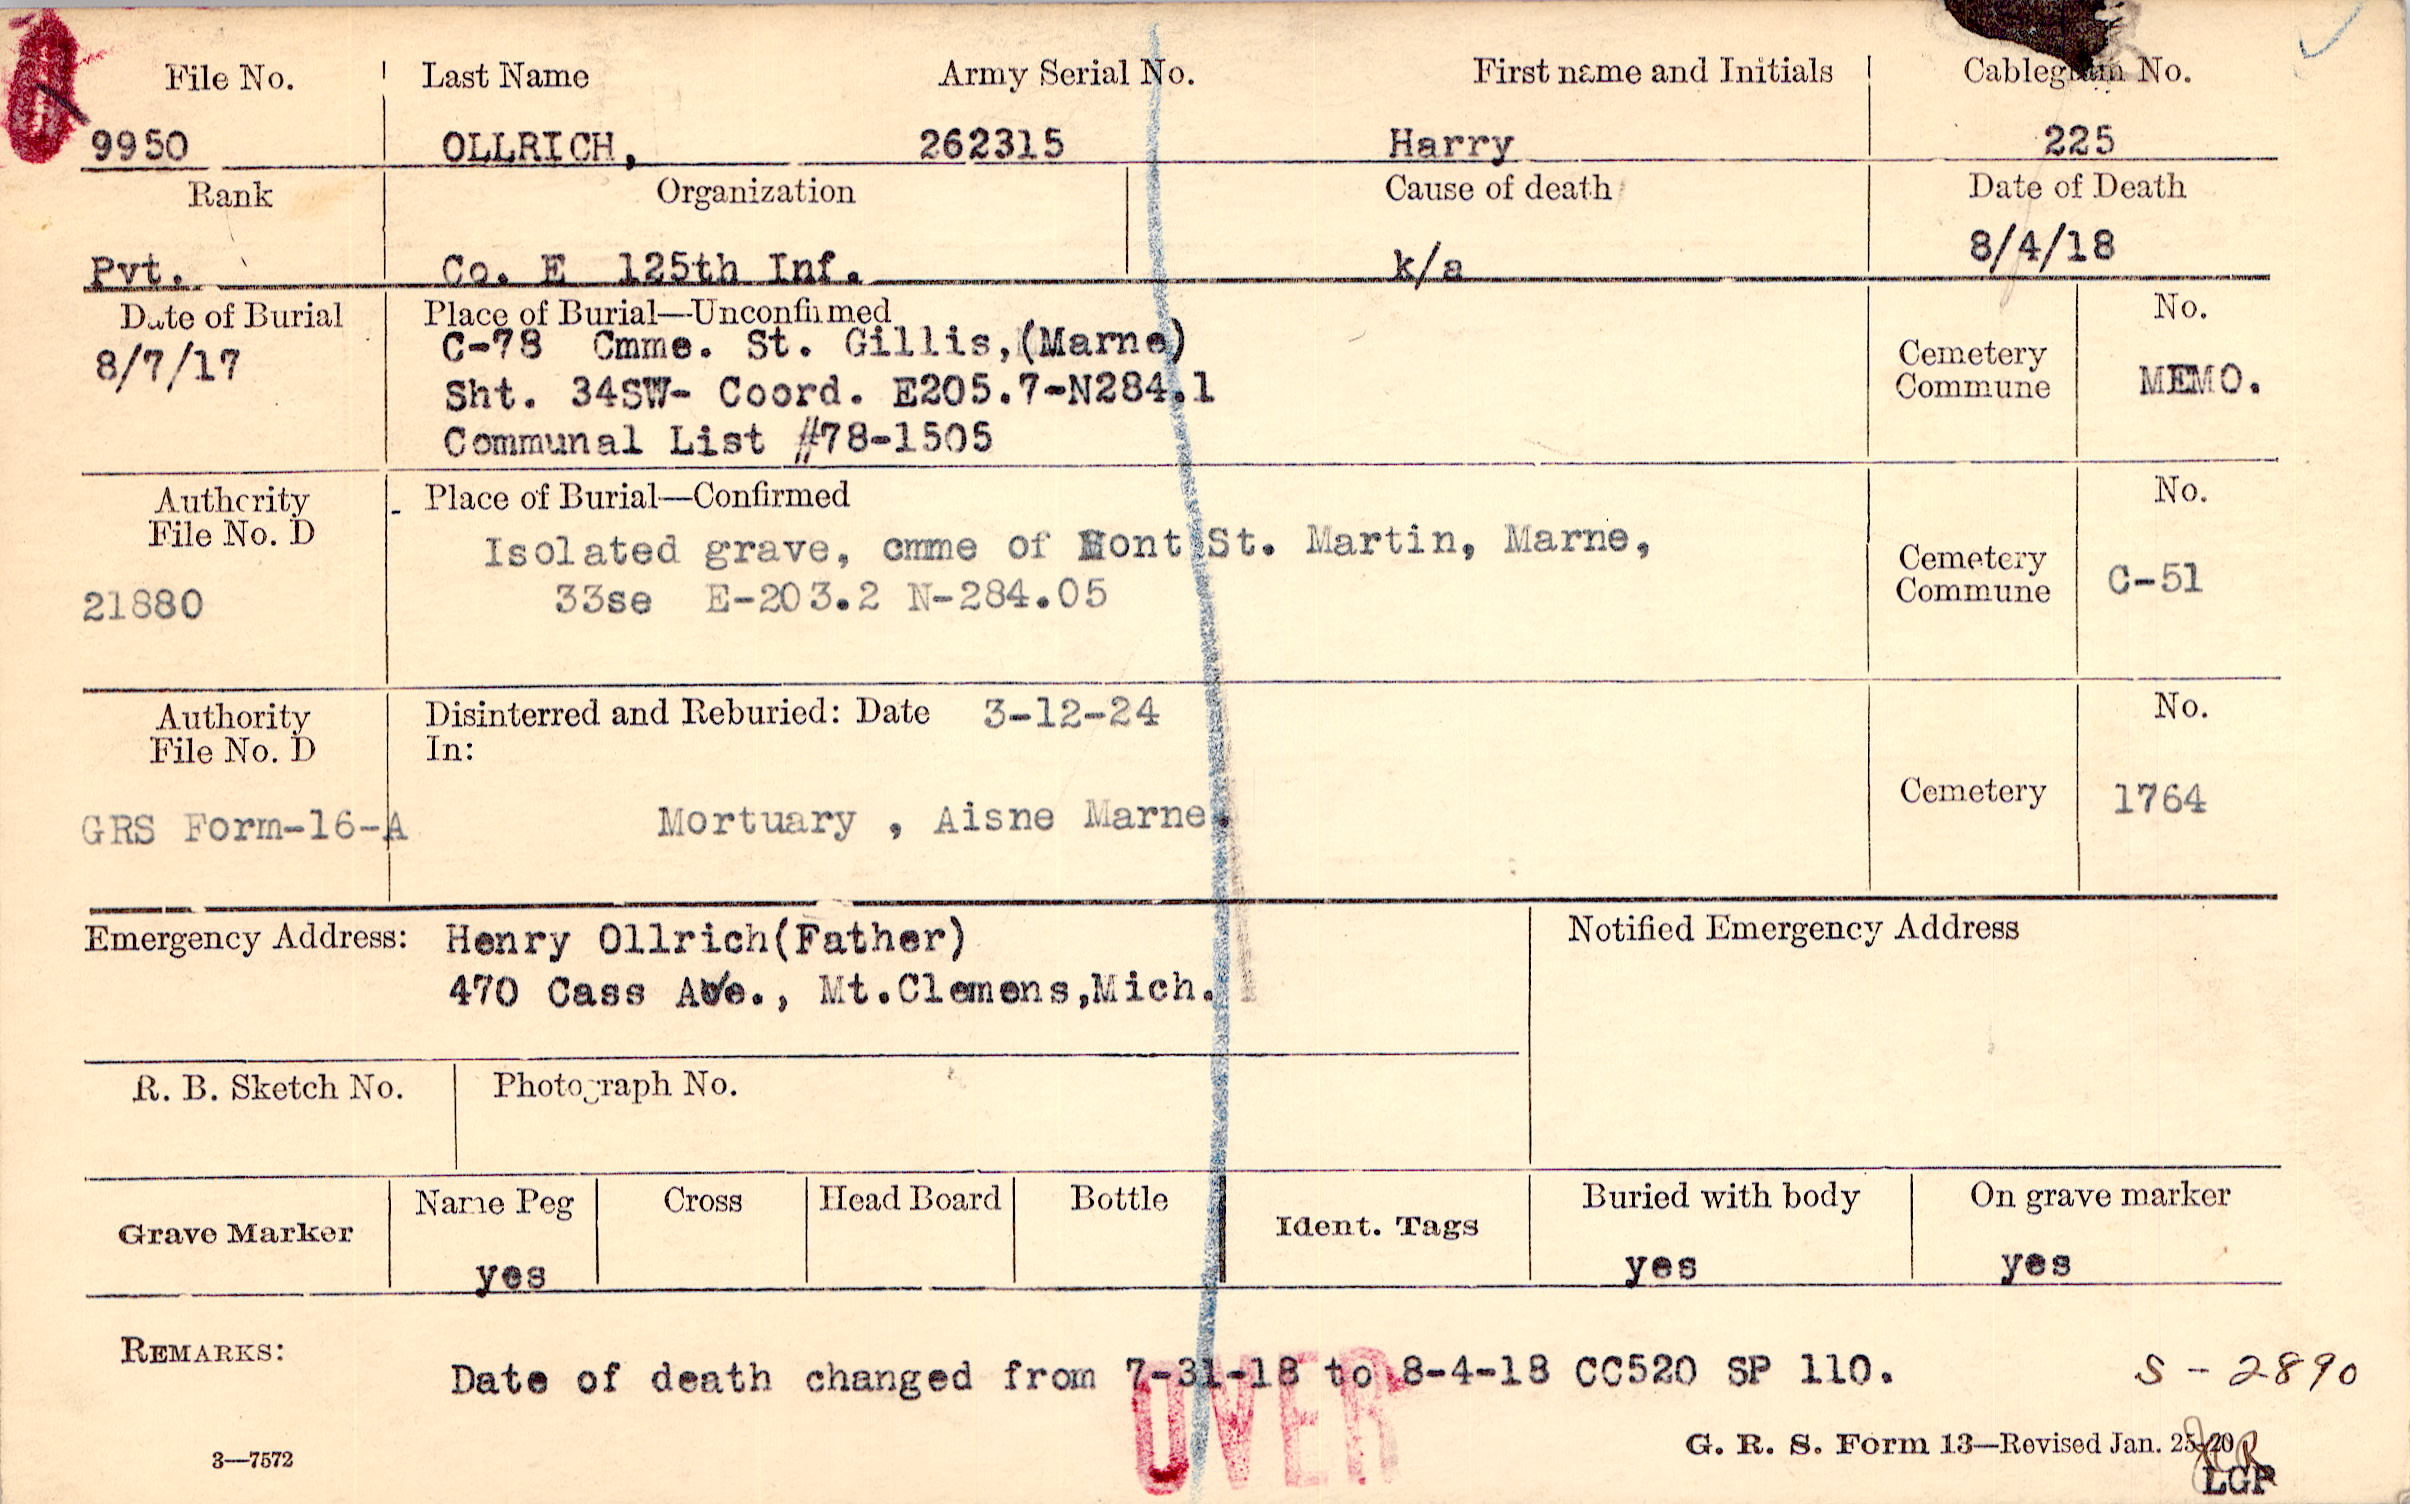 File No. Last Name Army Serial No. First name and Initials Cablegram No.
9950 OLLRICH, 262315 Harry 225
Rank Organization Cause of death Date of Death
Pvt. Co. E 125th Inf. k/a 8/4/18
Date of Burial Place of Burial—Unconfirmed No.
8/7/17 C-78 Cmme. St. Gillis,(Marne)
Sht. 34SW- Coord. E205.7-N284.1 Cemetery Commune MEMO.
Communal List #78-1505
Authority File No. D Place of Burial—Confirmed No.
Isolated grave, cmme of Mont St. Martin, Marne, Cemetery Commune C-51
21880 33se E-203.2 N-284.05
Authority File No. D Disinterred and Reburied: Date 3-12-24 No.
In:
GRS Form-16-A Mortuary , Aisne Marne. Cemetery 1764
Emergency Address: Henry Ollrich(Father) Notified Emergency Address
470 Cass Ave., Mt.Clemens,Mich.
R. B. Sketch No. Photograph No.
Grave Marker Name Peg Cross Head Board Bottle Ident. Tags Buried with body On grave marker
yes yes yes
REMARKS:
Date of death changed from 7-31-18 to 8-4-18 CC520 SP 110. S - 2890
OVER
3—7572 G. R. S. Form 13—Revised Jan. 25-20
LGR